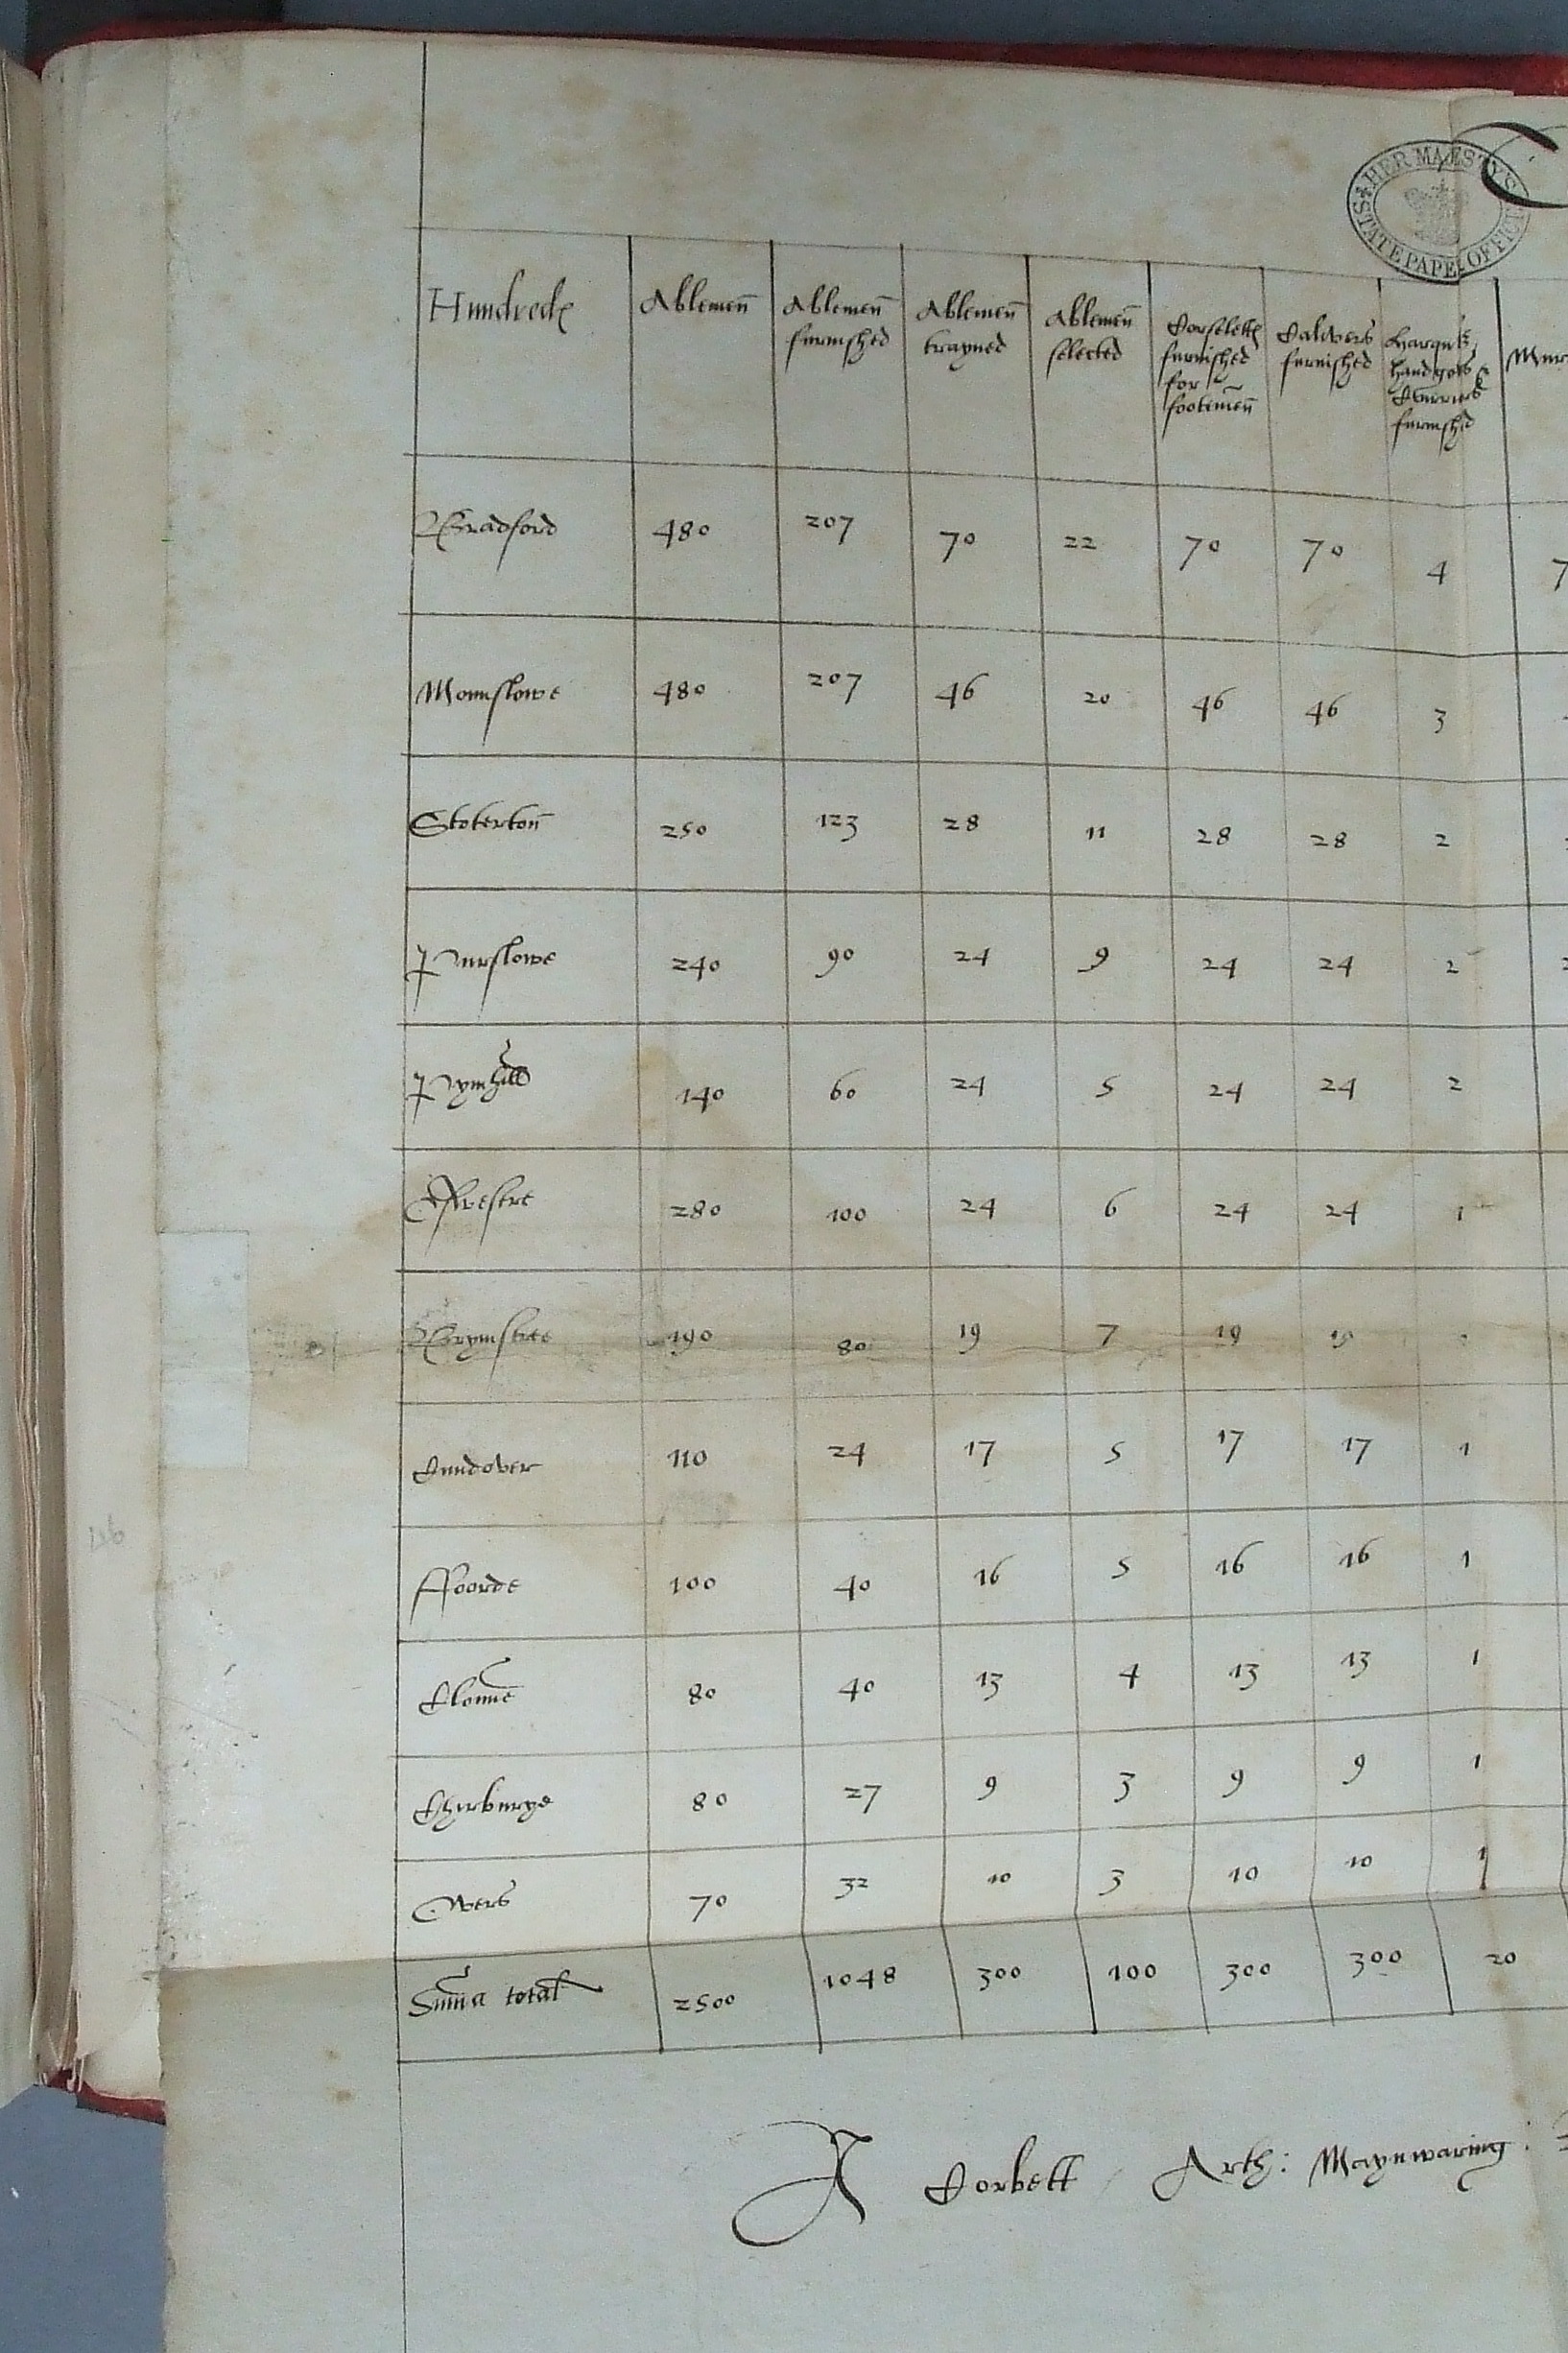 HER MAJESTYS STATE PAPER OFFICE
Hundredes Ablemen Ablemen furnished Ablemen trayned Ablemen selected Corselettes furnished for footemen Calivers furnished Harqubz handgones & Curriers furnished
Bradford 480 207 70 22 70 70 4 7
Mounslowe 480 207 46 20 46 46 3
Stoterton 250 123 28 11 28 28 2
Purslowe 240 90 24 9 24 24 2
Pymhill 140 60 24 5 24 24 2
Oswestre 280 100 24 6 24 24 1
Brymstree 190 80 19 7 19 19
Cundover 110 24 17 5 17 17 1
Ffoorde 100 40 16 5 16 16 1
Clonne 80 40 13 4 13 13 1
Chirburye 80 27 9 3 9 9 1
Overs 70 32 10 3 10 10 1
Summa total 2500 1048 300 100 300 300 20
A Corbett Arth: Maynwaring:
46